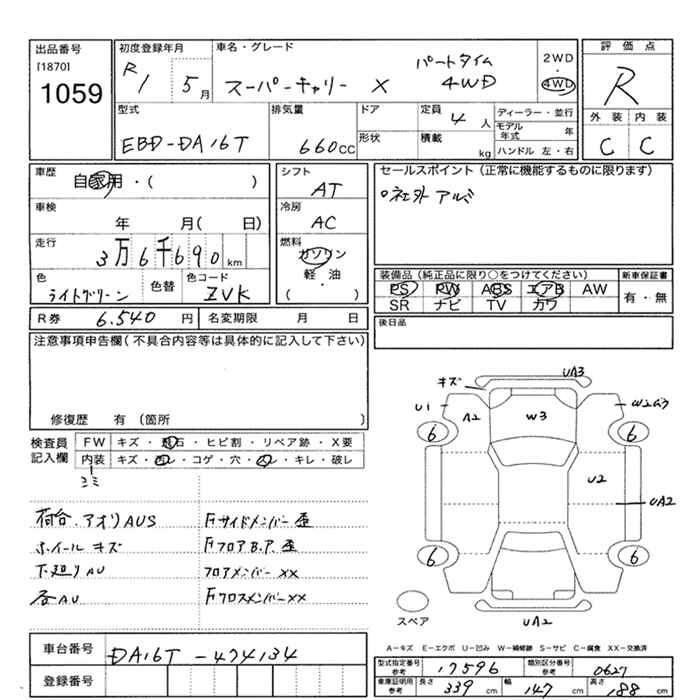 出品番号
[1870]
1059
初度登録年月
R1 5月
車名・グレード
スーパーキャリー X パートタイム 4WD
2WD
・
4WD
評価点
R
外装 内装
C C
型式
EBD-DA16T
排気量
660CC
ドア
形状
定員 4 人
積載 kg
ディーラー・並行
モデル年式 年
ハンドル 左・右
車歴
自家用・( )
車検
年 月( 日)
走行
3万6千690km
色
ライトグリーン
色替
色コード
ZVK
シフト
AT
冷房
AC
燃料
ガソリン
軽・油
( )
セールスポイント(正常に機能するものに限ります)
○社外アルミ
装備品(純正品に限り○をつけてください)
PS PW ABS エアB AW
SR ナビ TV カワ
新車保証書
有・無
R券 6.540 円
名変期限 月 日
後日品
注意事項申告欄(不具合内容等は具体的に記入して下さい)
修復歴 有(箇所 )
検査員
記入欄
FW キズ・飛石・ヒビ割・リペア跡・X要
内装 キズ・汚レ・コゲ・穴・スレ・キレ・破レ
ゴミ
荷台.アオリAUS
ホイールキズ
下廻りAU
各AU
Fサイドメンバー歪
FフロアB.P.歪
フロアメンバーXX
FクロスメンバーXX
キズ UA3
U1 A2 W3 W2
6 6
U2
UA2
6 6
スペア
UA2
A-キズ E-エクボ U-凹み W-補修跡 S-サビ C-腐食 XX-交換済
車台番号
DA16T-474134
登録番号
型式指定番号
参考
17596
類別区分番号
参考
0627
車庫証明用
参考
長さ 339 cm
幅 147 cm
高さ 188 cm